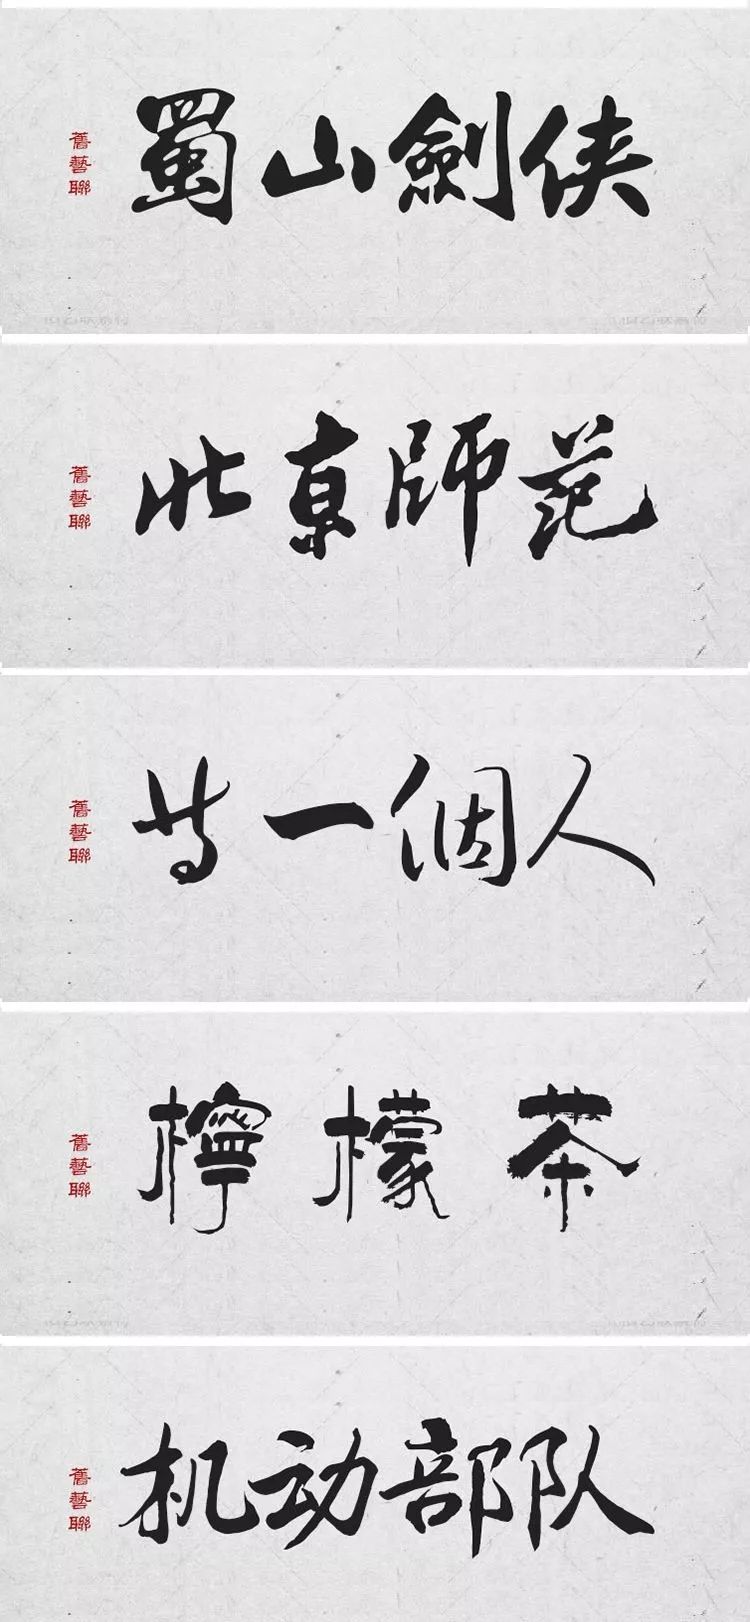 蜀山劍侠
舊藝聯
北京師范
舊藝聯
等一個人
舊藝聯
檸檬茶
舊藝聯
机动部队
舊藝聯